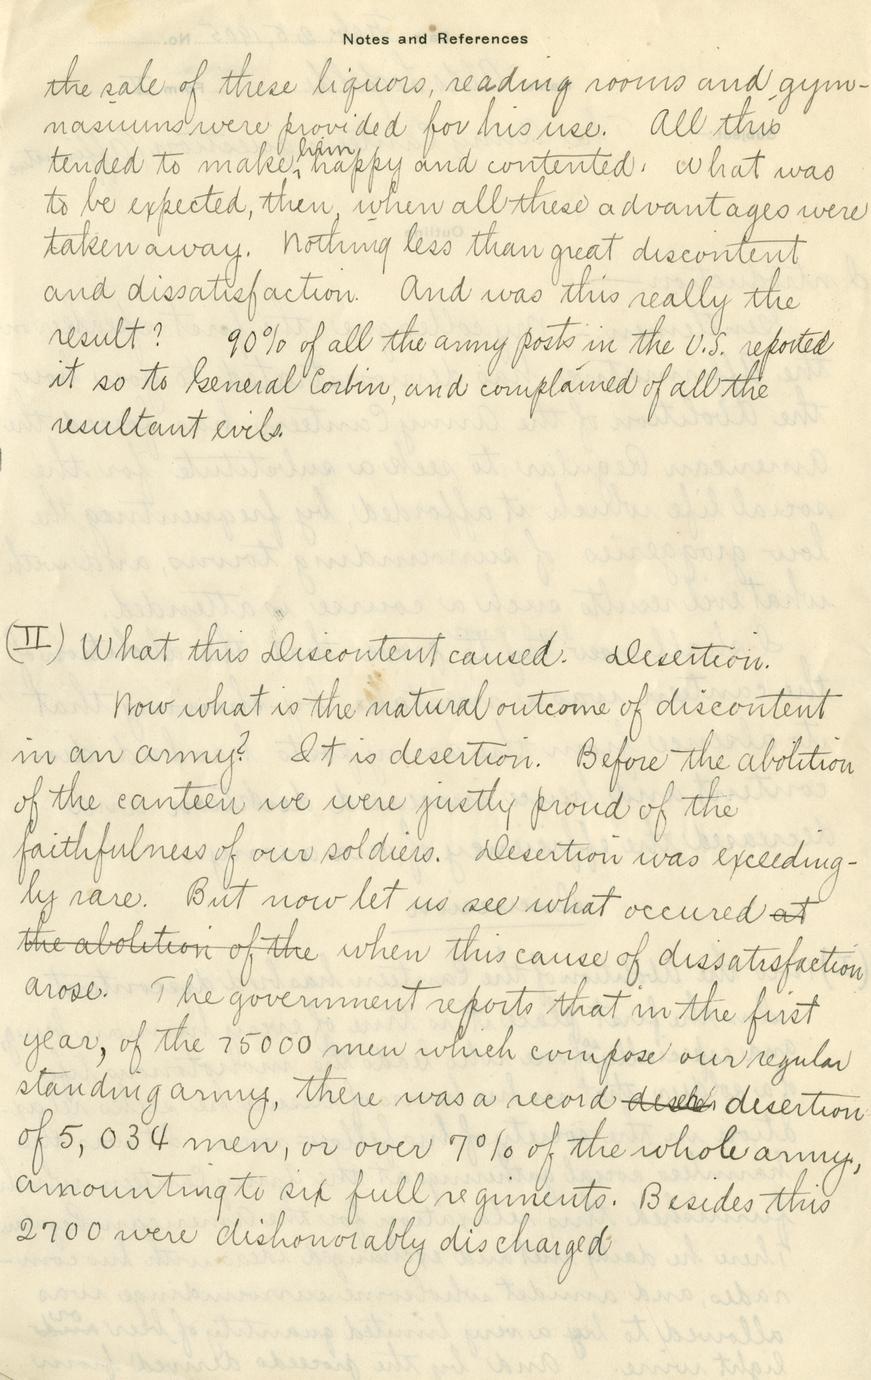 Notes and References
the sale of these liquors, reading rooms and gym-
nasiums were provided for his use. All this
tended to make him happy and contented. What was
to be expected, then, when all these advantages were
taken away. Nothing less than great discontent
and dissatisfaction. And was this really the
result? 90% of all the army posts in the U.S. reported
it so to General Corbin, and complained of all the
resultant evils.
(II) What this Discontent caused. Desertion.
Now what is the natural outcome of discontent
in an army? It is desertion. Before the abolition
of the canteen we were justly proud of the
faithfulness of our soldiers. Desertion was exceeding-
ly rare. But now let us see what occured at
the abolition of the when this cause of dissatisfaction
arose. The government reports that in the first
year, of the 75000 men which compose our regular
standing army, there was a record desertion
of 5,034 men, or over 7% of the whole army,
amounting to six full regiments. Besides this
2700 were dishonorably discharged